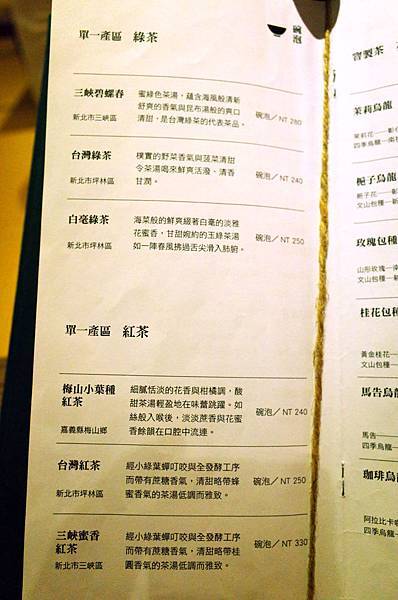 單一產區 綠茶
三峽碧螺春
新北市三峽區
蜜綠色茶湯，蘊含海風般清新
舒爽的香氣與昆布湯般的爽口
清甜，是台灣綠茶的代表茶品。
碗泡／NT 280
台灣綠茶
新北市坪林區
樸實的野菜香氣與菠菜清甜
令茶湯喝來鮮爽活潑、清香
甘潤。
碗泡／NT 240
白毫綠茶
新北市坪林區
海菜般的鮮爽綴著白毫的淡雅
花蜜香，甘甜婉約的玉綠茶湯
如一陣春風拂過舌尖滑入肺腑。
碗泡／NT 250
單一產區 紅茶
梅山小葉種
紅茶
嘉義縣梅山鄉
細膩恬淡的花香與柑橘調，酸
甜茶湯輕盈地在味蕾跳躍。如
絲般入喉後，淡淡蔗香與花蜜
香餘韻在口腔中流連。
碗泡／NT 240
台灣紅茶
新北市坪林區
經小綠葉蟬叮咬與全發酵工序
而帶有蔗糖香氣，清甜略帶蜂
蜜香氣的茶湯低調而雅致。
碗泡／NT 250
三峽蜜香
紅茶
新北市三峽區
經小綠葉蟬叮咬與全發酵工序
而帶有蔗糖香氣，清甜略帶桂
圓香氣的茶湯低調而雅致。
碗泡／NT 330
窨製茶
茉莉烏龍
茉莉花──彰
四季烏龍──南
梔子烏龍
梔子花──彰
文山包種──新
玫瑰包種
山形玫瑰──南
文山包種──新
桂花包種
黃金桂花──
文山包種──
馬告烏龍
馬告──
四季烏龍──
珈琲烏龍
阿拉比卡
四季烏龍──